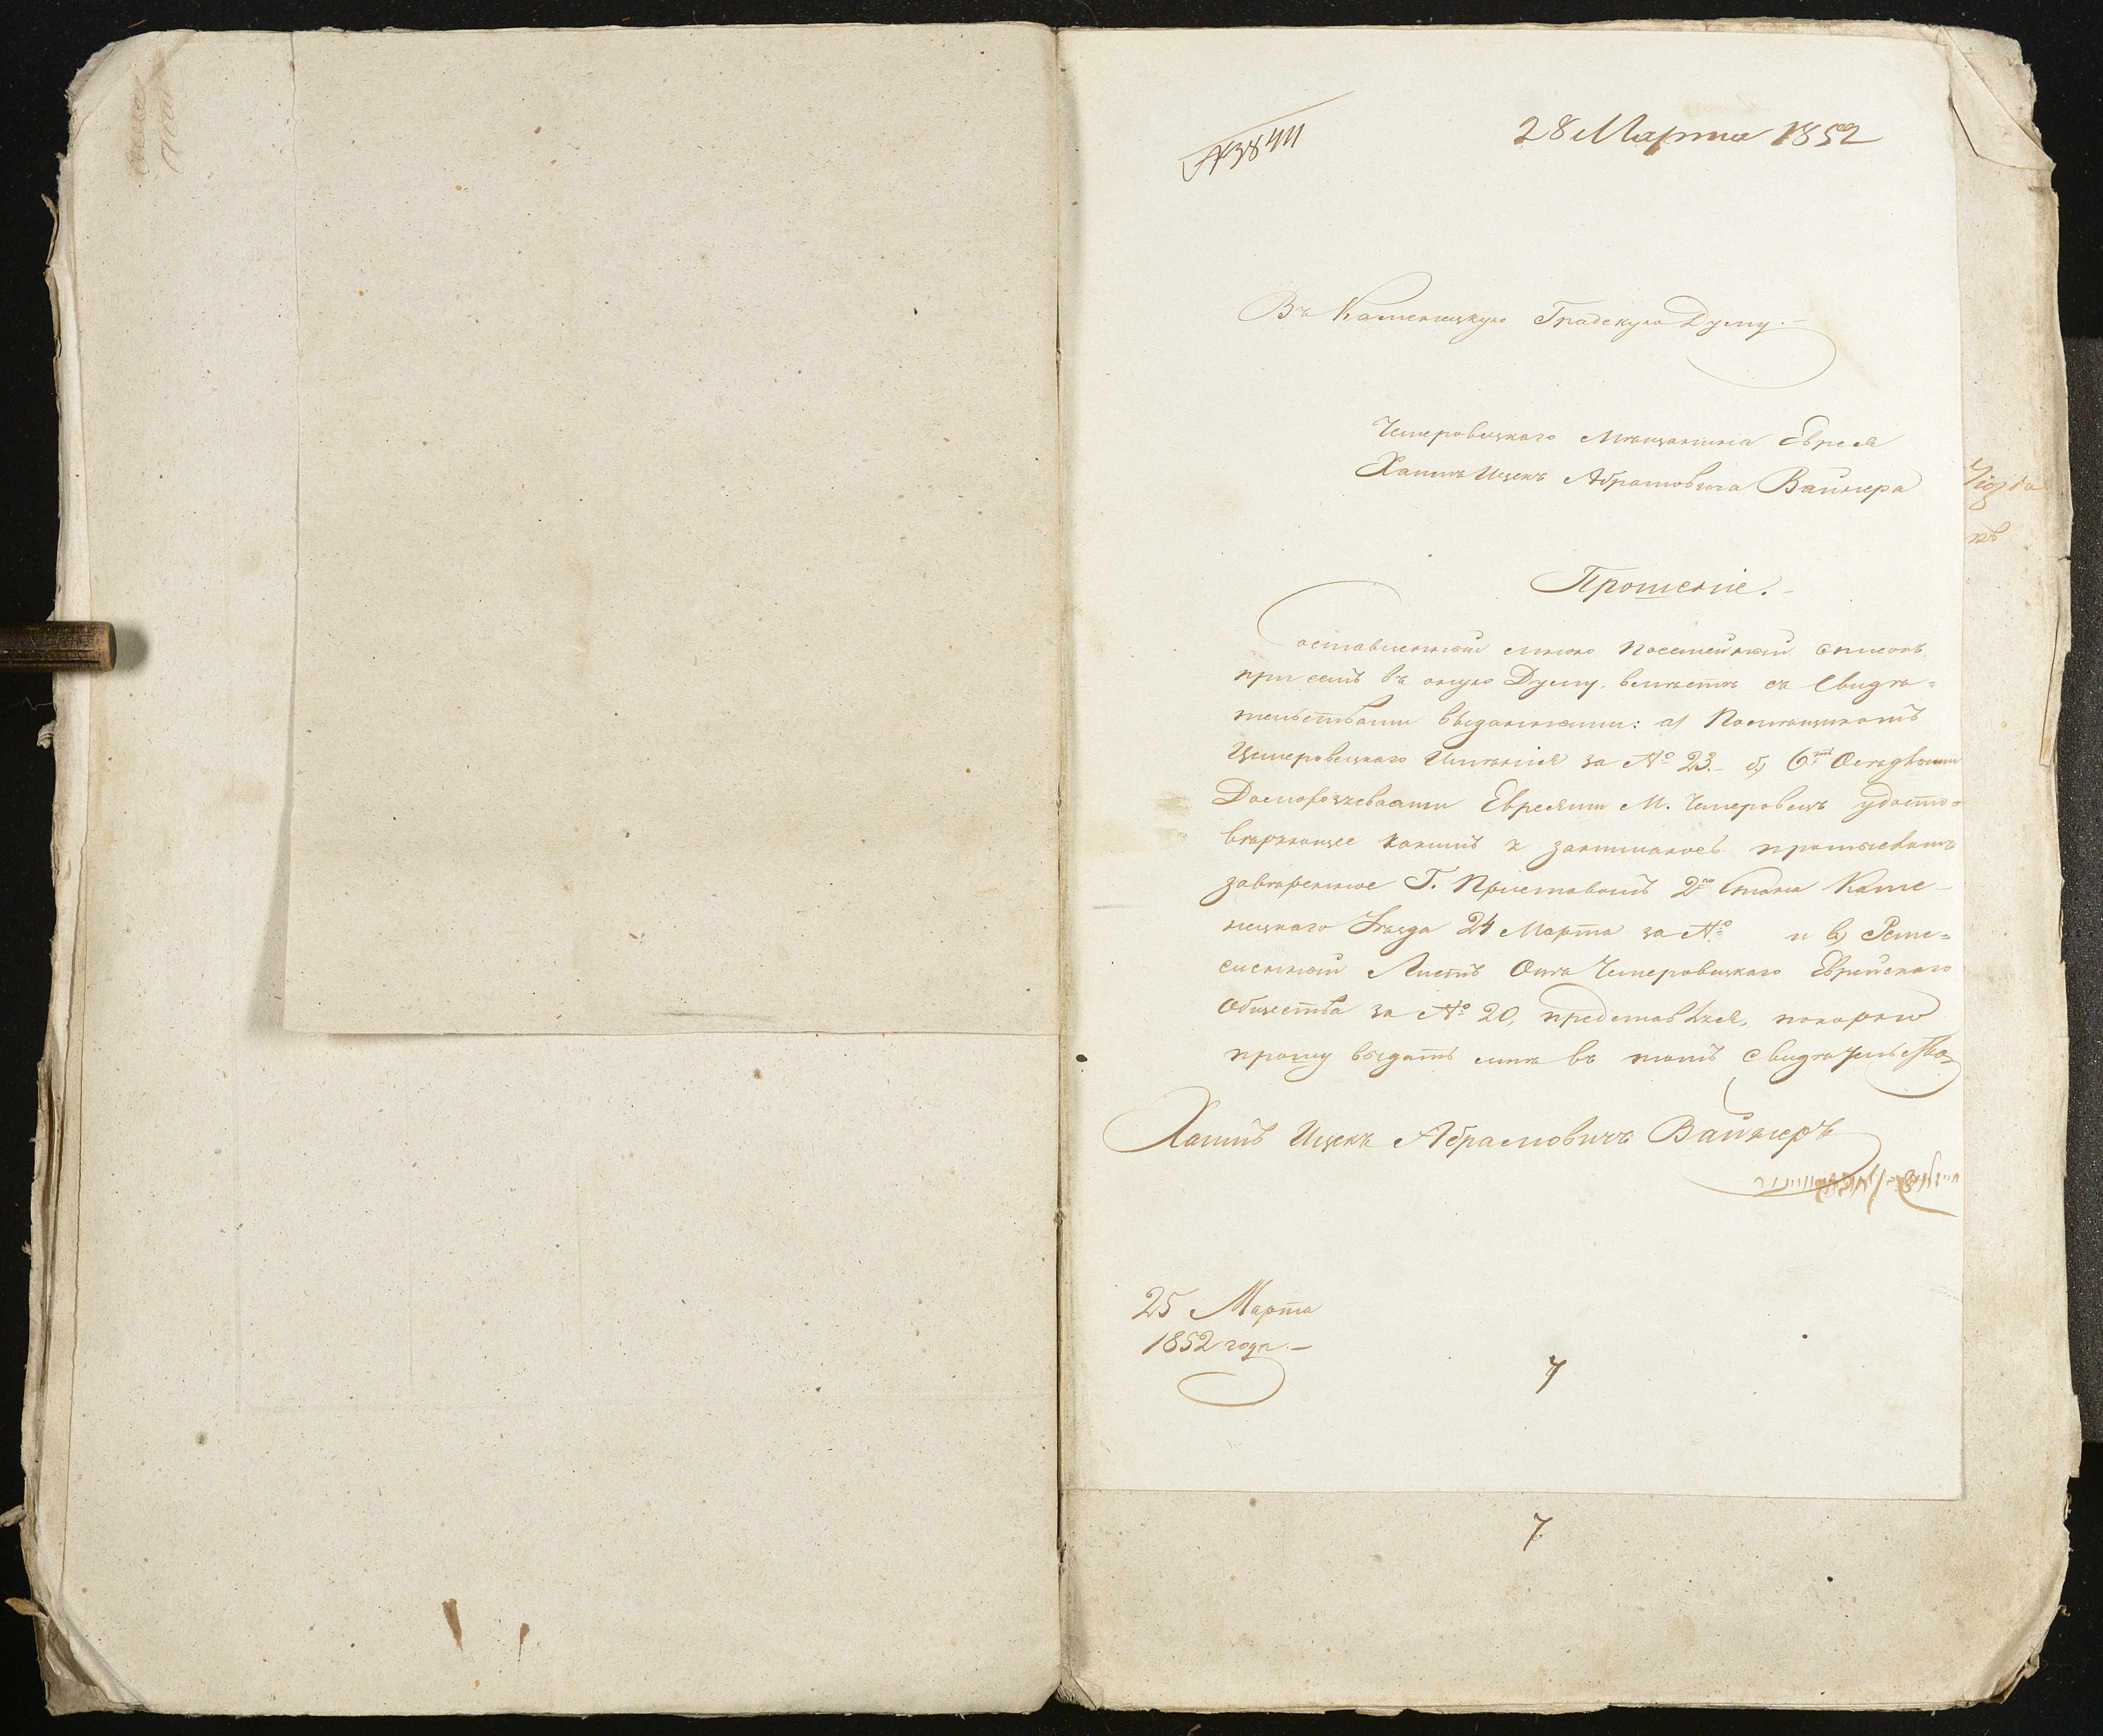 28 Марта 1852
Въ Каменецкую Градскую Думу.—
Чемеровецкаго Мѣщанина Еврея
Хаимъ Ицекъ Абрамовича Вайнера
Прошеніе.—
Составленный мною посемейный списокъ
при семъ въ оную Думу, вмѣстѣ съ Свидѣ=
тельствами выданными: а) Помѣщикомъ
Цемеровецкаго Имѣнія за № 23.— б) 6ть Осѣдлыми
Домохозяевами Евреями М. Чемеровецъ удосто=
вѣряющее какимъ я занимаюсь промысломъ
завѣренное Г. Приставомъ 2го Стана Каме—
нецкаго Уѣзда 24 Марта за № и в) Реме=
сленный Листъ Отъ Чемеровецкаго Еврейскаго
Общества за № 20, представляя, покорно
прошу выдать мнѣ въ томъ свидѣтельство
Хаимъ Ицекъ Абрамовичъ Вайнеръ
25 Марта
1852 года.—
7
7